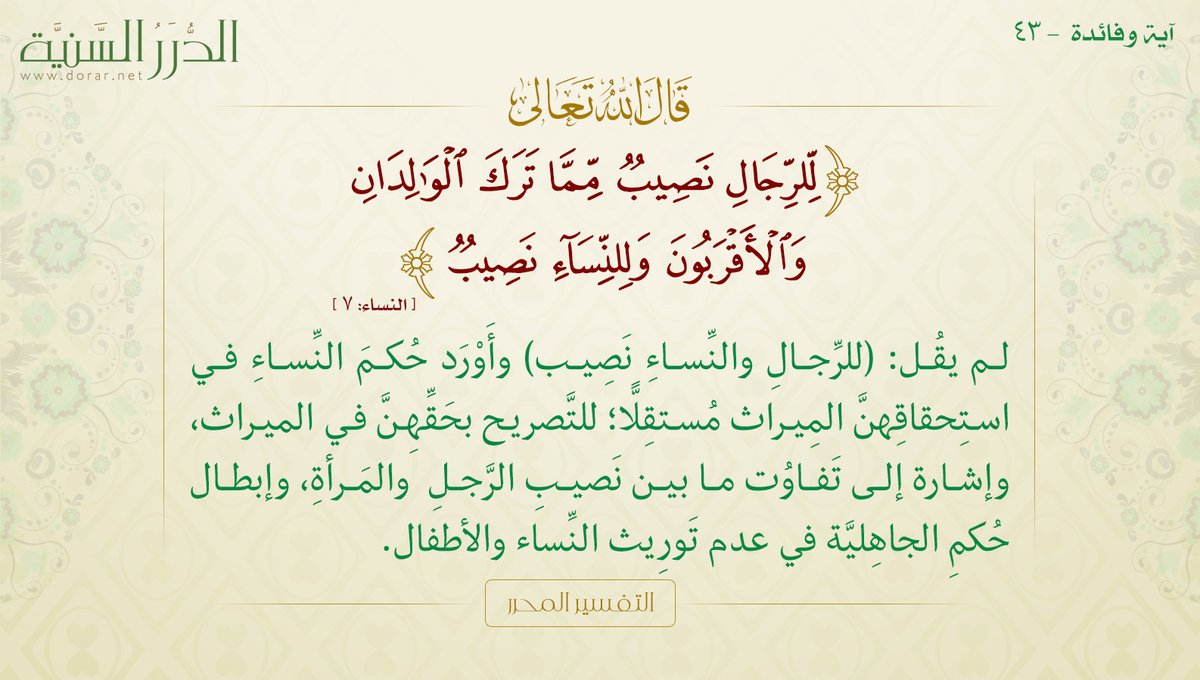 آية وفائدة - ٤٣
الدُّرَرُ السَّنِيَّة
www.dorar.net
قَالَ اللهُ تَعَالَى
﴿لِّلرِّجَالِ نَصِيبٌ مِّمَّا تَرَكَ ٱلْوَٰلِدَانِ
وَٱلْأَقْرَبُونَ وَلِلنِّسَآءِ نَصِيبٌ﴾
[النساء: ٧]
لم يقُل: (للرِّجالِ والنِّساءِ نَصِيب) وأَوْرَد حُكمَ النِّساءِ في
استِحقاقِهنَّ المِيراث مُستقِلًّا؛ للتَّصريح بحَقِّهِنَّ في الميراث،
وإشارة إلى تَفاوُت ما بين نَصيبِ الرَّجلِ والمَرأةِ، وإبطال
حُكمِ الجاهِليَّة في عدم تَورِيث النِّساء والأطفال.
التفسير المحرر